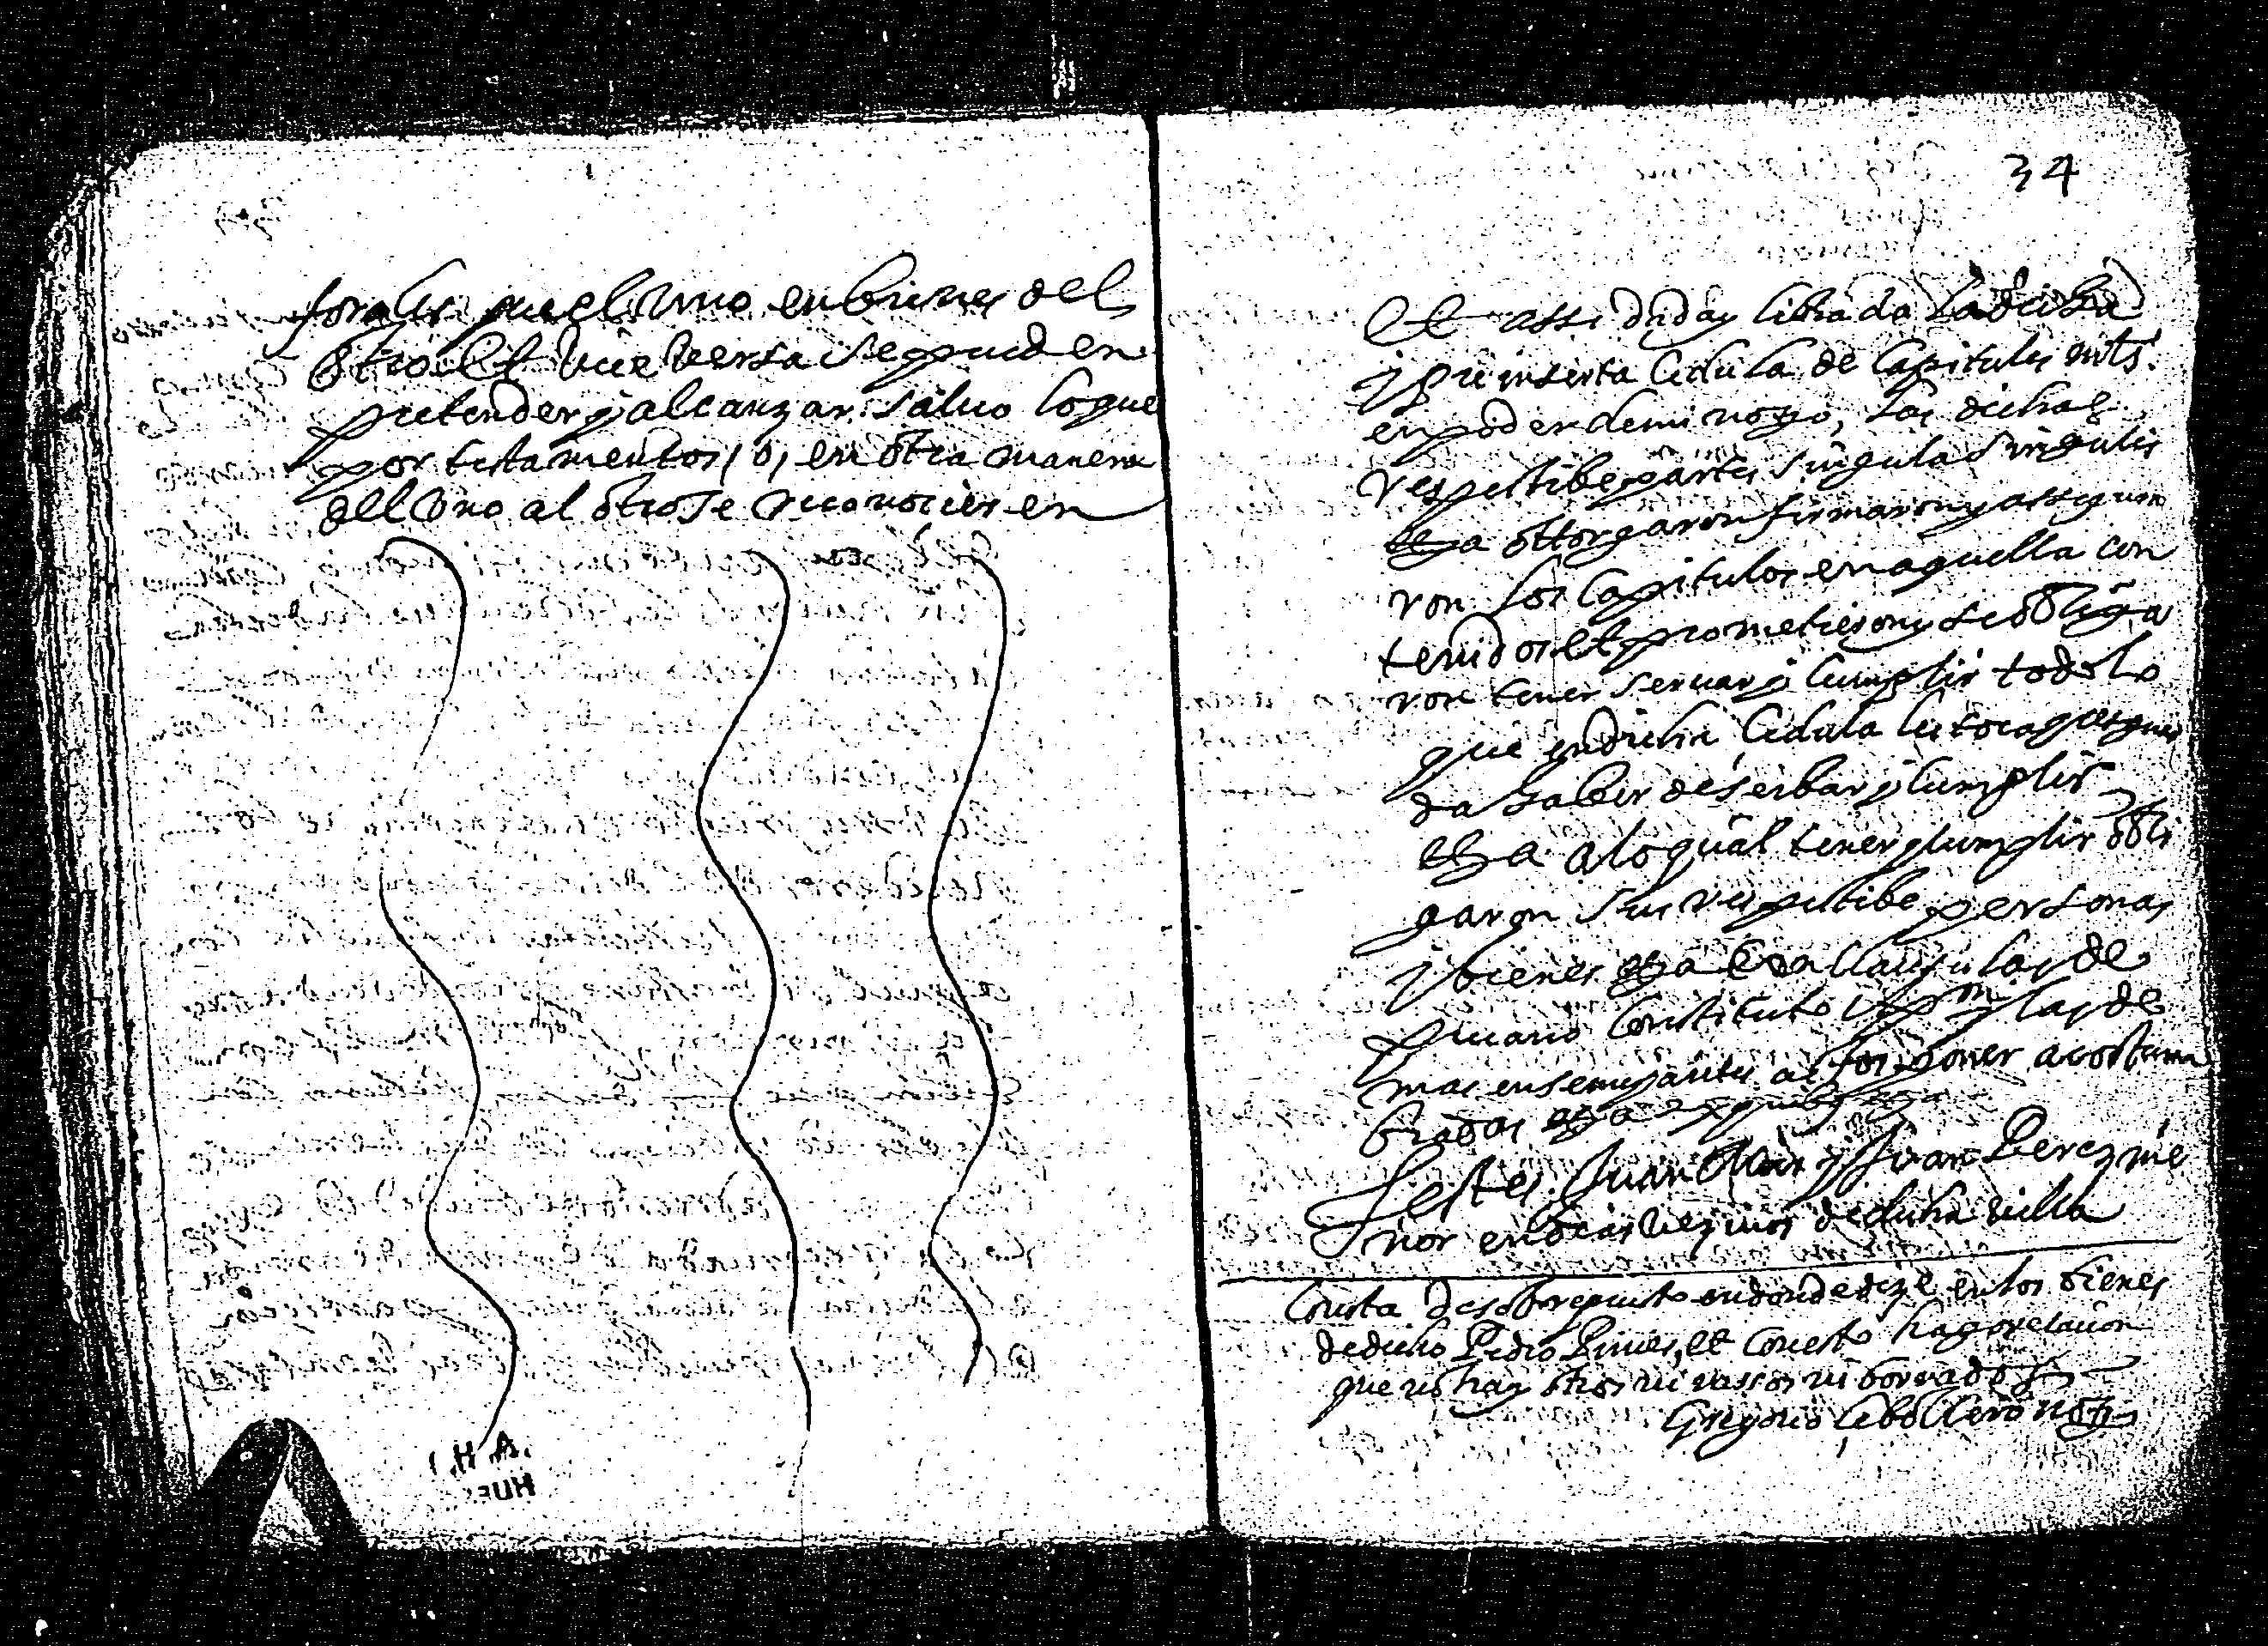 forales que el Vno en bienes del
otro Et vice versa se pueden
pretender y alcanzar saluo lo que
por testamentos, o, en otra manera
del Vno al otro se reconocieren
A. H.
HUES
34
Et assi dada y librada La dicha
y preinserta Cedula de Capitules mts.
en poder de mi noro, las dichas
respectibe partes singula singulis
etza ottorgaron firmaron y assegura
ron los Capitulos en aquella con
tenidos Et prometieron y se obliga
ron tener seruar y Cumplir todo lo
que en dicha Cedula les toca y pertene
da haber de serbar y Cumplir
etza a lo qual tener y Cumplir obli
garon sus respectibe personas
y bienes etza Con Clausulas de
precario Constituto y las de
mas en semejantes actos poner acostum
bradas etza ex quibus etza
Testes Juan y Juan Perez me
nor en vezinos de dicha villa
Consta de sobrepuesto en donde dize en los bienes
de dicho Pedro et Con esto hago relacion
que no hay otros ni rassos ni borrados
Gregorio Cebollero noto